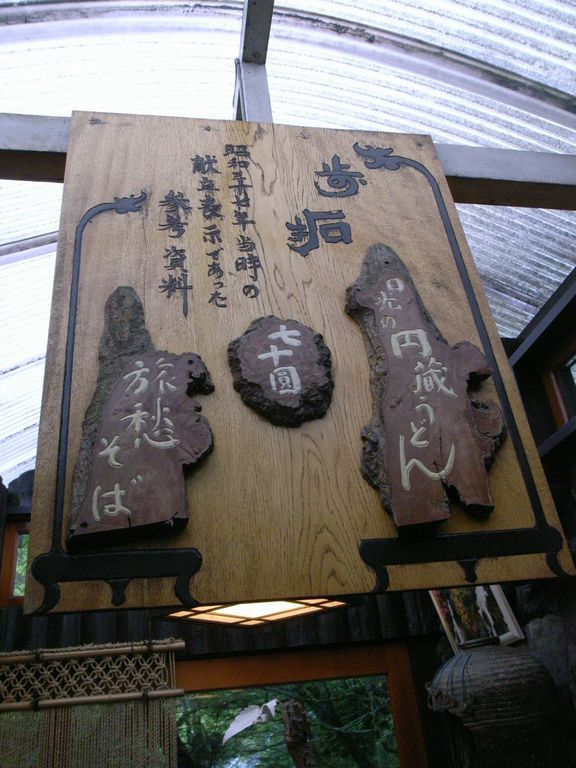 歩拓
昭和三七年当時の
献立表示であった
参考資料
日光の
円蔵うどん
七十圓
旅愁
そば